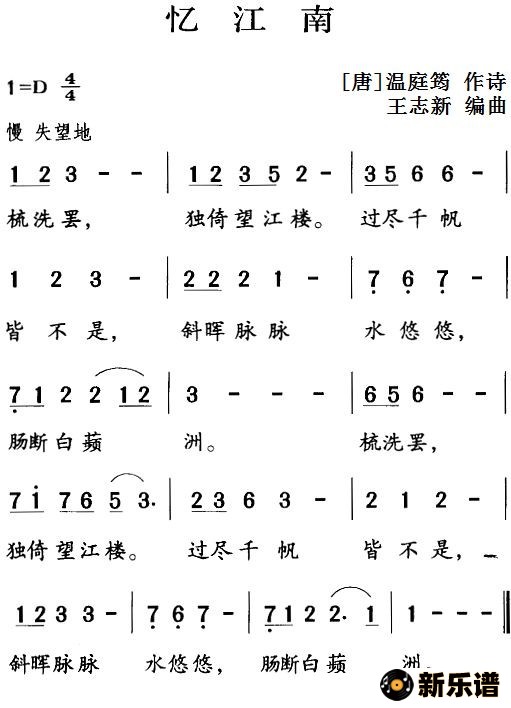 忆 江 南
1=D 4/4
[唐]温庭筠 作诗
王志新 编曲
慢 失望地
1 2 3 - - | 1 2 3 5 2 - | 3 5 6 6 - |
梳洗罢， 独倚望江楼。 过尽千帆
1 2 3 - | 2 2 2 1 - | 7 6 7 - |
皆 不 是， 斜晖脉脉 水悠悠，
7 1 2 2 1 2 | 3 - - - | 6 5 6 - - |
肠断白蘋 洲。 梳洗罢，
7 1 7 6 5 3. | 2 3 6 3 - | 2 1 2 - |
独倚望江楼。 过尽千 帆 皆 不 是，
1 2 3 3 - | 7 6 7 - | 7 1 2 2. 1 | 1 - - - ‖
斜晖脉脉 水悠悠， 肠断白蘋 洲。
新乐谱